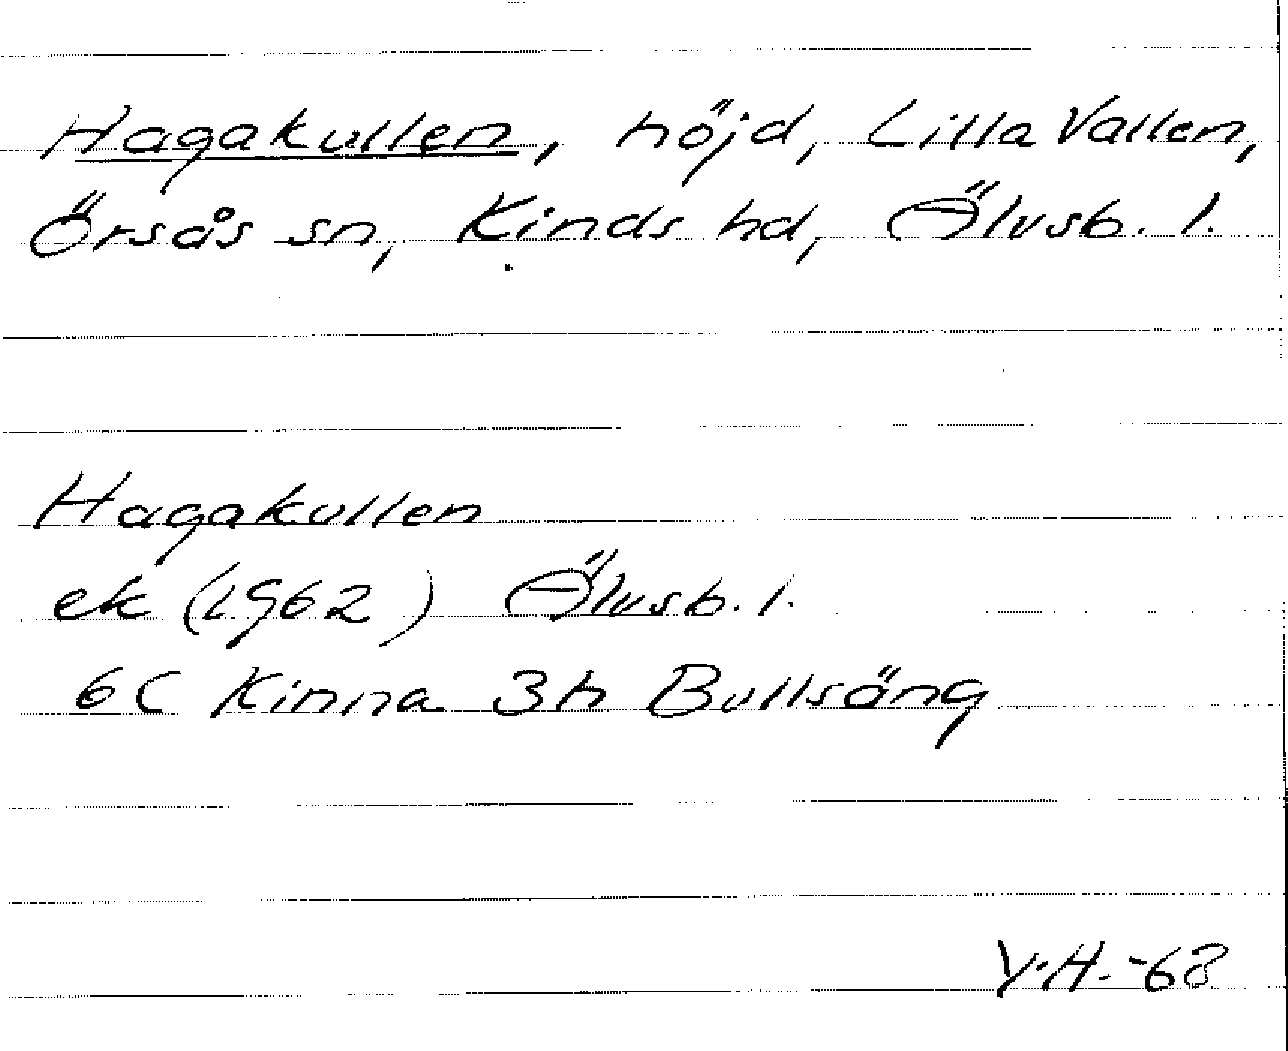 Hagakullen, höjd, Lilla Vallen,
Örsås sn, Kinds hd, Älvsb. l.
Hagakullen
ek (1962) Älvsb. l.
6C Kinna 3h Bullsäng
Y.H. -68